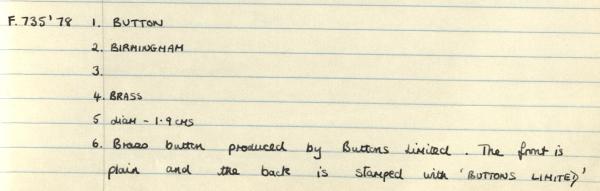 F.735'78 1. BUTTON
2. BIRMINGHAM
3.
4. BRASS
5 diam - 1.9 cms
6. Brass button produced by Buttons Limited. The front is
plain and the back is stamped with 'BUTTONS LIMITED'